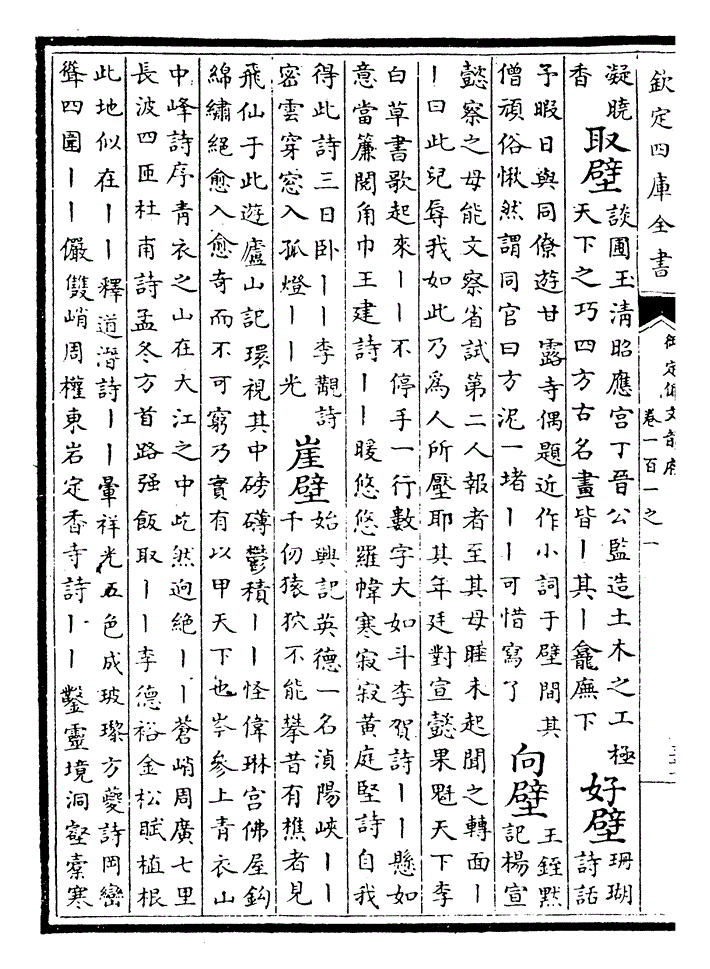 欽定四庫全書
御定佩文韻府
卷一百一之一
凝曉
香
取壁
談圃玉清昭應宮丁晉公監造土木之工極
天下之巧四方古名畫皆丨其丨龕廡下
好壁
珊瑚
詩話
予暇日與同僚遊甘露寺偶題近作小詞于壁間其
僧頑俗愀然謂同官曰方泥一堵丨丨可惜寫了
向壁
王銍默
記楊宣
懿察之母能文察省試第二人報者至其母睡未起聞之轉面丨
丨曰此兒辱我如此乃為人所壓耶其年廷對宣懿果魁天下李
白草書歌起來丨丨不停手一行數字大如斗李賀詩丨丨懸如
意當簾閱角巾王建詩丨丨暖悠悠羅幃寒寂寂黄庭堅詩自我
得此詩三日卧丨丨李覯詩
密雲穿窓入孤燈丨丨光
崖壁
始興記英德一名湞陽峽丨丨
千仞猿狖不能攀昔有樵者見
飛仙于此遊廬山記環視其中磅礴鬱積丨丨怪偉琳宮佛屋鈎
綿繡絕愈入愈奇而不可窮乃實有以甲天下也岑參上青衣山
中峰詩序青衣之山在大江之中屹然迥絶丨丨蒼峭周廣七里
長波四匝杜甫詩孟冬方首路强飯取丨丨李德裕金松賦植根
此地似在丨丨釋道潛詩丨丨暈祥光五色成玻瓈方夔詩岡巒
聳四圍丨丨儼雙峭周權東岩定香寺詩丨丨鑿靈境洞壑橐寒